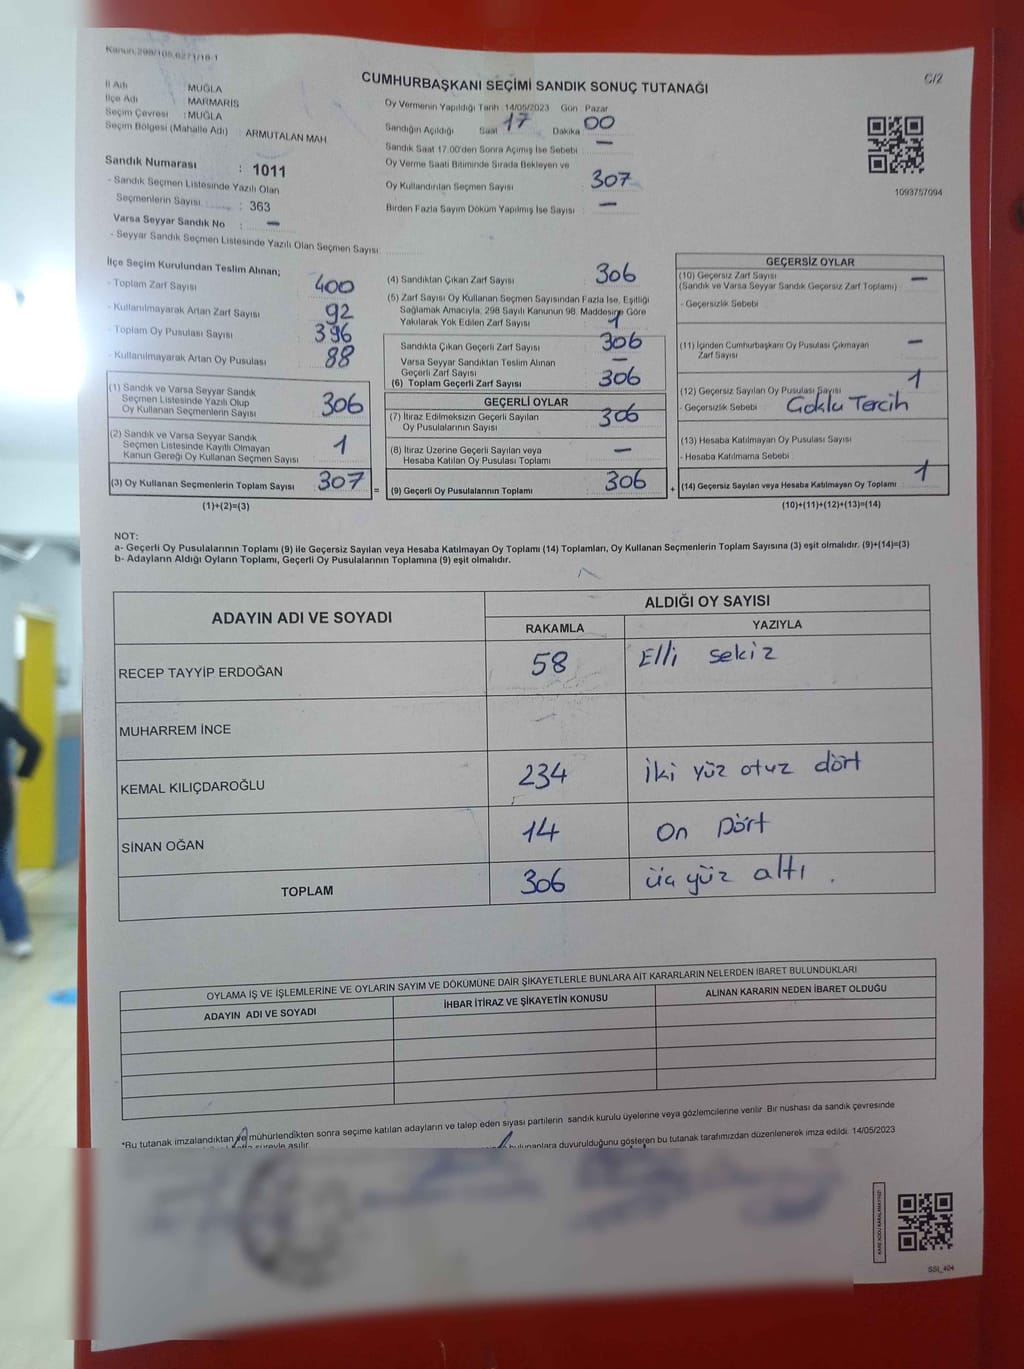 Kanun, 298/105,6271/18-1
CUMHURBAŞKANI SEÇİMİ SANDIK SONUÇ TUTANAĞI
C/2
İl Adı : MUĞLA
İlçe Adı : MARMARİS
Seçim Çevresi : MUĞLA
Seçim Bölgesi (Mahalle Adı) : ARMUTALAN MAH
Oy Vermenin Yapıldığı Tarih 14/05/2023 Gün Pazar
Sandığın Açıldığı Saat 17 Dakika 00
Sandık Saat 17.00'den Sonra Açımış İse Sebebi —
Oy Verme Saati Bitiminde Sırada Bekleyen ve
Oy Kullandırılan Seçmen Sayısı 307
Birden Fazla Sayım Döküm Yapılmış İse Sayısı —
1093757094
Sandık Numarası : 1011
- Sandık Seçmen Listesinde Yazılı Olan
Seçmenlerin Sayısı : 363
Varsa Seyyar Sandık No : —
- Seyyar Sandık Seçmen Listesinde Yazılı Olan Seçmen Sayısı
İlçe Seçim Kurulundan Teslim Alınan;
- Toplam Zarf Sayısı 400
- Kullanılmayarak Artan Zarf Sayısı 92
- Toplam Oy Pusulası Sayısı 396
- Kullanılmayarak Artan Oy Pusulası 88
(1) Sandık ve Varsa Seyyar Sandık
Seçmen Listesinde Yazılı Olup
Oy Kullanan Seçmenlerin Sayısı 306
(2) Sandık ve Varsa Seyyar Sandık
Seçmen Listesinde Kayıtlı Olmayan
Kanun Gereği Oy Kullanan Seçmen Sayısı 1
(3) Oy Kullanan Seçmenlerin Toplam Sayısı 307 =
(1)+(2)=(3)
(4) Sandıktan Çıkan Zarf Sayısı 306
(5) Zarf Sayısı Oy Kullanan Seçmen Sayısından Fazla İse, Eşitliği
Sağlamak Amacıyla, 298 Sayılı Kanunun 98. Maddesine Göre
Yakılarak Yok Edilen Zarf Sayısı 1
Sandıkta Çıkan Geçerli Zarf Sayısı 306
Varsa Seyyar Sandıktan Teslim Alınan
Geçerli Zarf Sayısı —
(6) Toplam Geçerli Zarf Sayısı 306
GEÇERLİ OYLAR
(7) İtiraz Edilmeksizin Geçerli Sayılan
Oy Pusulalarının Sayısı 306
(8) İtiraz Üzerine Geçerli Sayılan veya
Hesaba Katılan Oy Pusulası Toplamı —
(9) Geçerli Oy Pusulalarının Toplamı 306 +
GEÇERSİZ OYLAR
(10) Geçersiz Zarf Sayısı —
(Sandık ve Varsa Seyyar Sandık Geçersiz Zarf Toplamı)
- Geçersizlik Sebebi
(11) İçinden Cumhurbaşkanı Oy Pusulası Çıkmayan
Zarf Sayısı —
(12) Geçersiz Sayılan Oy Pusulası Sayısı 1
- Geçersizlik Sebebi Çoklu Tercih
(13) Hesaba Katılmayan Oy Pusulası Sayısı
- Hesaba Katılmama Sebebi
(14) Geçersiz Sayılan veya Hesaba Katılmayan Oy Toplamı 1
(10)+(11)+(12)+(13)=(14)
NOT:
a- Geçerli Oy Pusulalarının Toplamı (9) ile Geçersiz Sayılan veya Hesaba Katılmayan Oy Toplamı (14) Toplamları, Oy Kullanan Seçmenlerin Toplam Sayısına (3) eşit olmalıdır. (9)+(14)=(3)
b- Adayların Aldığı Oyların Toplamı, Geçerli Oy Pusulalarının Toplamına (9) eşit olmalıdır.
ADAYIN ADI VE SOYADI
ALDIĞI OY SAYISI
RAKAMLA YAZIYLA
RECEP TAYYİP ERDOĞAN 58 Elli sekiz
MUHARREM İNCE —
KEMAL KILIÇDAROĞLU 234 İki yüz otuz dört
SİNAN OĞAN 14 On Dört
TOPLAM 306 üç yüz altı .
OYLAMA İŞ VE İŞLEMLERİNE VE OYLARIN SAYIM VE DÖKÜMÜNE DAİR ŞİKAYETLERLE BUNLARA AİT KARARLARIN NELERDEN İBARET BULUNDUKLARI
ADAYIN ADI VE SOYADI İHBAR İTİRAZ VE ŞİKAYETİN KONUSU ALINAN KARARIN NEDEN İBARET OLDUĞU
*Bu tutanak imzalandıktan ve mühürlendikten sonra seçime katılan adayların ve talep eden siyasi partilerin sandık kurulu üyelerine veya gözlemcilerine verilir. Bir nushası da sandık çevresinde
süreyle asılır. bulunanlara duyurulduğunu gösteren bu tutanak tarafımızdan düzenlenerek imza edildi. 14/05/2023
SSI_404